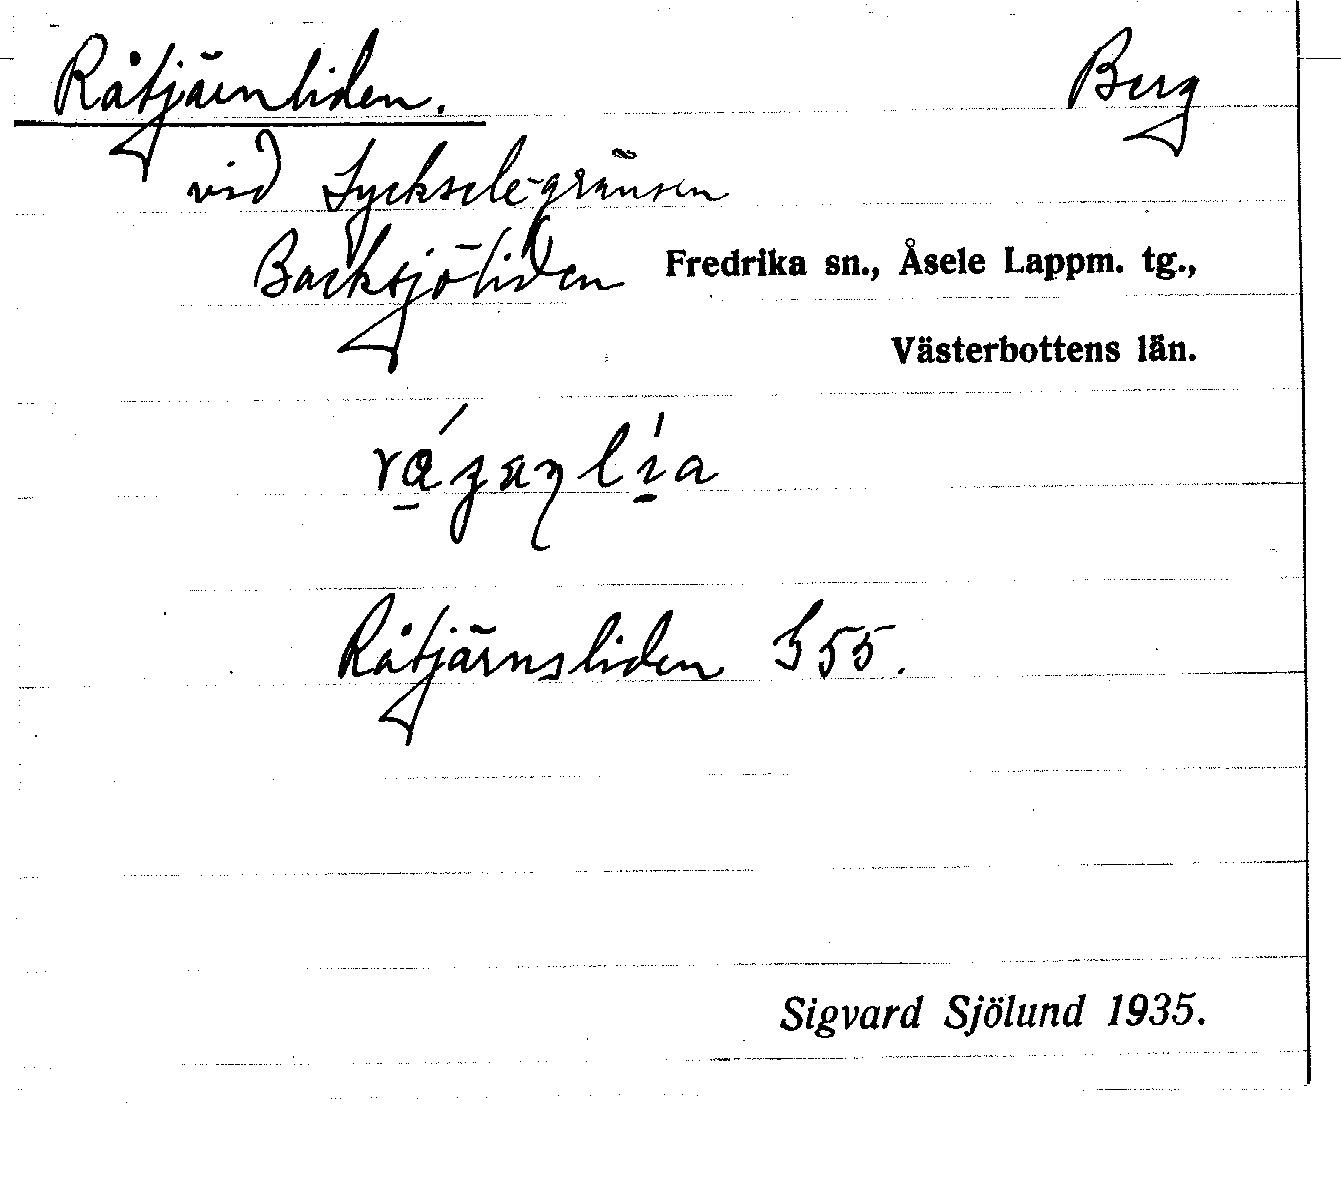 Råtjärnliden. Berg
vid Lycksele-gränsen
Backsjöliden Fredrika sn., Åsele Lappm. tg.,
Västerbottens län.
Råtjärnsliden S 55.
Sigvard Sjölund 1935.